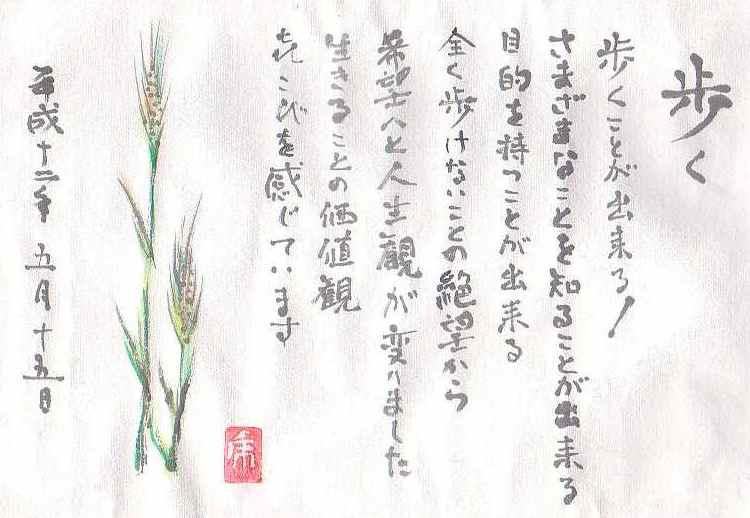 歩く
歩くことが出来る!
さまざまなことを知ることが出来る
目的を持つことが出来る
全く歩けないことの絶望から
希望へと人生観が変りました
生きることの価値観
喜びを感じています
平成十二年 五月十五日